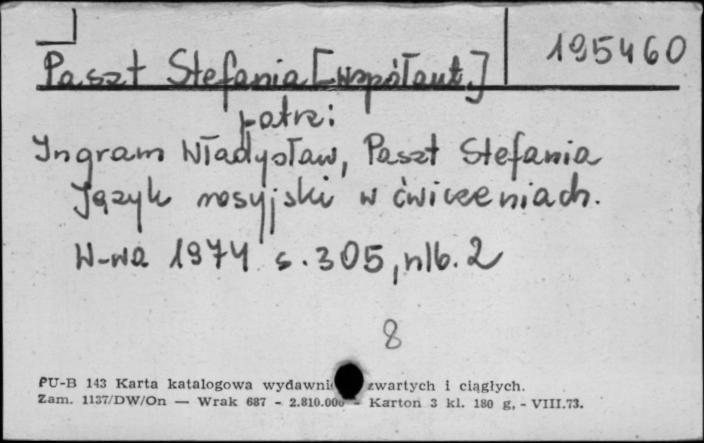 195460
Paszt Stefania [współaut.]
patrz:
Ingram Władysław, Paszt Stefania
Język rosyjski w ćwiczeniach.
W-wa 1974 s. 305, nlb. 2
8
PU-B 143 Karta katalogowa wydawni zwartych i ciągłych.
Zam. 1137/DW/On — Wrak 687 - 2.810.000 - Karton 3 kl. 180 g. - VIII.73.